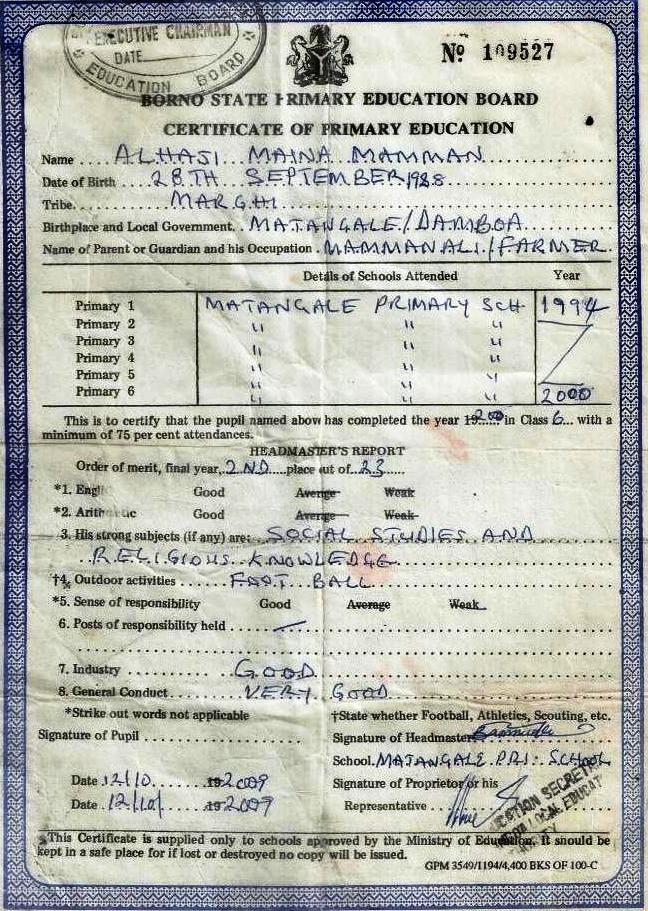 EXECUTIVE CHAIRMAN
DATE
EDUCATION BOARD
No 109527
BORNO STATE PRIMARY EDUCATION BOARD
CERTIFICATE OF PRIMARY EDUCATION
Name .... ALHAJI MAINA MAMMAN
Date of Birth .... 28TH SEPTEMBER 1988
Tribe ........ MARGHI
Birthplace and Local Government. MATANGALE/DAMBOA
Name of Parent or Guardian and his Occupation . MAMMAN ALI / FARMER
Details of Schools Attended Year
Primary 1 MATANGALE PRIMARY SCH 1994
Primary 2 " " "
Primary 3 " " "
Primary 4 " " "
Primary 5 " " "
Primary 6 " " " 2000
This is to certify that the pupil named above has completed the year 19 200 in Class 6... with a
minimum of 75 per cent attendances.
HEADMASTER'S REPORT
Order of merit, final year, 2ND place out of 23
*1. Engl Good Average Weak
*2. Arithmetic Good Average Weak
3. His strong subjects (if any) are: SOCIAL STUDIES AND
RELIGIOUS KNOWLEDGE
†4. Outdoor activities FOOT BALL
*5. Sense of responsibility Good Average Weak
6. Posts of responsibility held
7. Industry GOOD
8. General Conduct VERY GOOD
*Strike out words not applicable †State whether Football, Athletics, Scouting, etc.
Signature of Pupil Signature of Headmaster
School. MATANGALE PRI. SCHOOL
Date 12/10 19 2009 Signature of Proprietor or his
Date 12/10/ 19 2009 Representative
EDUCATION SECRET
LOCAL EDUCAT
This Certificate is supplied only to schools approved by the Ministry of Education. It should be
kept in a safe place for if lost or destroyed no copy will be issued.
GPM 3549/1194/4,400 BKS OF 100-C